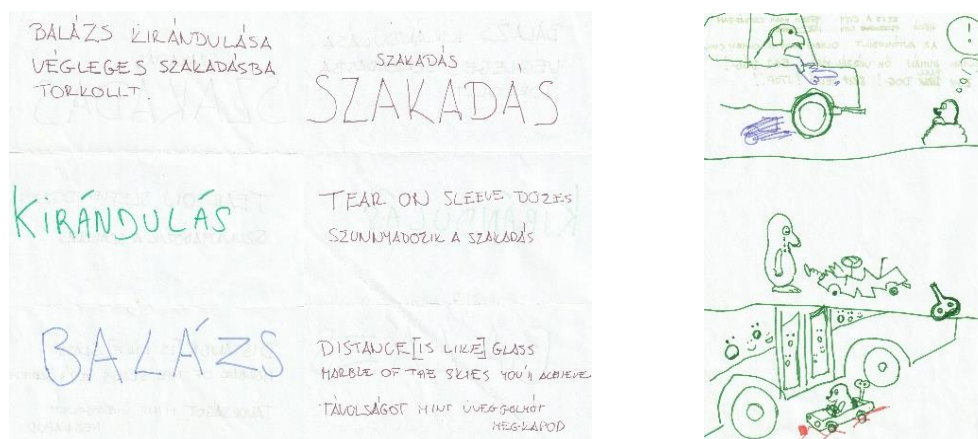 BALÁZS KIRÁNDULÁSA
VÉGLEGES SZAKADÁSBA
TORKOLLT.
SZAKADÁS
SZAKADÁS
KIRÁNDULÁS
TEAR ON SLEEVE DOZES
SZUNNYADOZIK A SZAKADÁS
BALÁZS
DISTANCE [IS LIKE] GLASS
MARBLE OF THE SKIES YOU'LL ACHIEVE
TÁVOLSÁGOT MINT ÜVEGGOLYÓT
MEGKAPOD
!